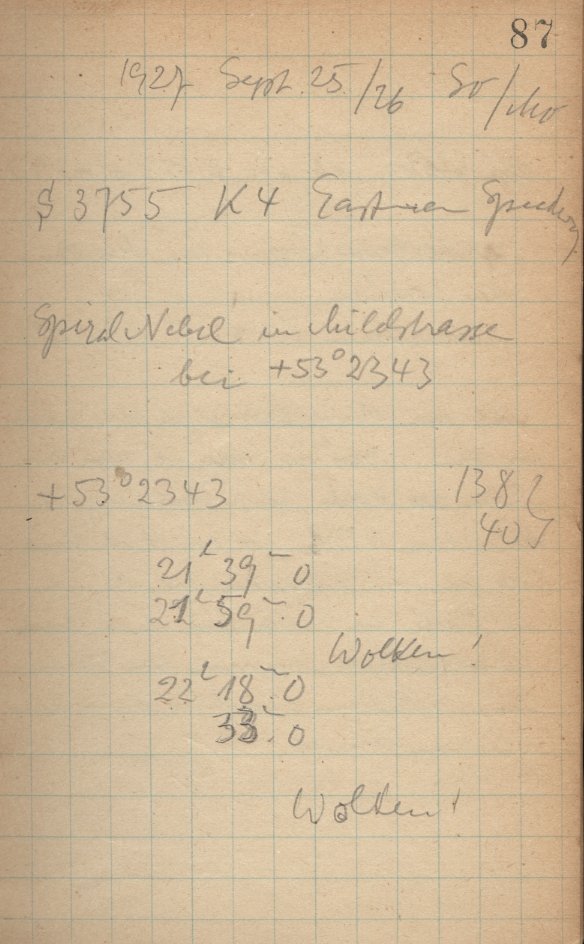 87
1927 Sept. 25/26 So/Mo
S 3755 K4 Eastman Speedway
Spiral Nebel in Milchstrasse
bei +53°2343
+53°2343 138 }
40 }
21ʰ 39ᵐ.0
21ʰ 59ᵐ.0
Wolken!
22ʰ 18ᵐ.0
33ᵐ.0
Wolken!